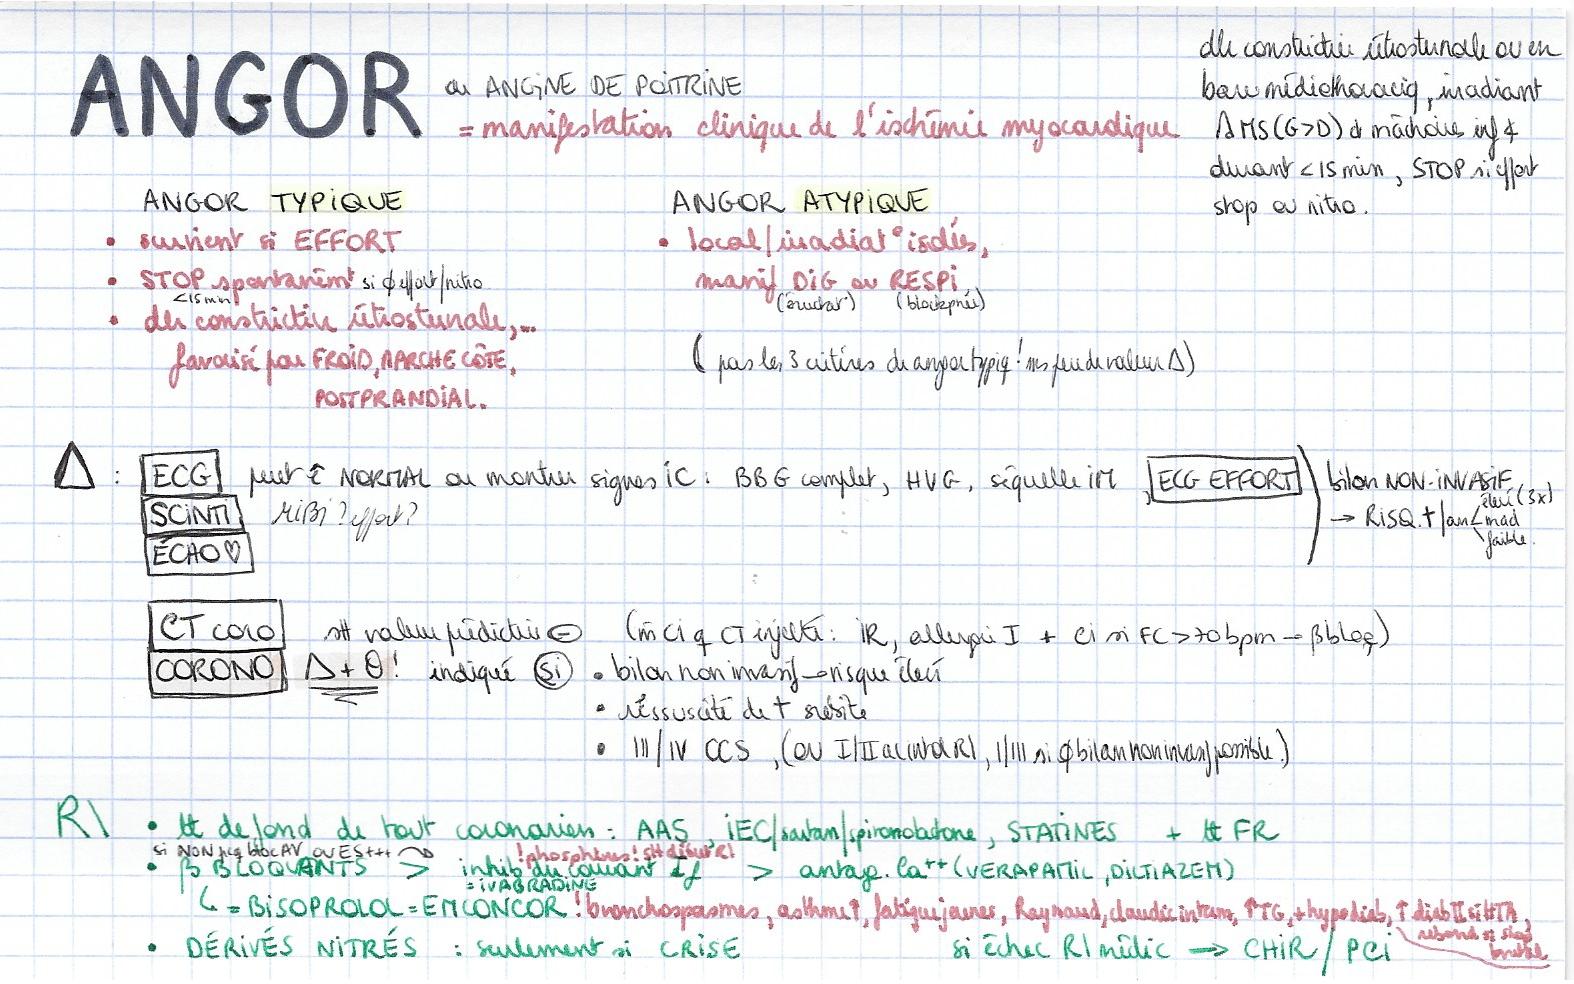 ANGOR ou ANGINE DE POITRINE
= manifestation clinique de l'ischémie myocardique
dlr constrictive rétrosternale ou en
barre médiothoraciq, irradiant
MS (G>D) mâchoires inf
durant <15 min, STOP si effort
stop ou nitro.
ANGOR TYPIQUE
• survient si EFFORT
• STOP spontaném̄t si ϕ effort/nitro
<15 min
• dlr constrictive rétrosternale,...
favorisé par FROID, MARCHE CÔTE,
POSTPRANDIAL.
ANGOR ATYPIQUE
• local/irradiat° isolés,
manif DIG ou RESPI
(éructat°) (blockpnée)
(pas les 3 critères de angor typiq! ms peu de valeur Δ)
Δ : ECG peut ê NORMAL ou montrer signes IC : BBG complet, HVG, séquelle IM, ECG EFFORT
SCINTI MIBI? effort?
ÉCHO ♡
bilan NON-INVASIF
→ RISQ. †/an élevé (3x)
mad
faible.
CT coro valeur prédictive ⊖ (m̂ CI q CT injecté: IR, allergie I + CI si FC >70 bpm → β bloq)
CORONO Δ + θ! indiqué si • bilan non invasif → risque élevé
• réssuscité de † subite
• III/IV CCS, (ou I/II RI, I/III si ϕ bilan non invasif possible.)
RI • tt de fond de tout coronarien : AAS, IEC/sartan/spironolactone, STATINES + tt FR
si NON bloc AV ou ES+++ !phosphènes! début RI
• β BLOQUANTS > inhib du courant If > antag. Ca⁺⁺ (VERAPAMIL, DILTIAZEM)
= IVABRADINE
↳ = BISOPROLOL = EMCONCOR ! bronchospasmes, asthme↑, fatigue jeunes, Raynaud, claudic interm, ↑TG, + hypo diab, ↑ diab II si HTA,
rebond si stop
brutal
• DÉRIVÉS NITRÉS : seulement si CRISE si échec RI médic → CHIR / PCI